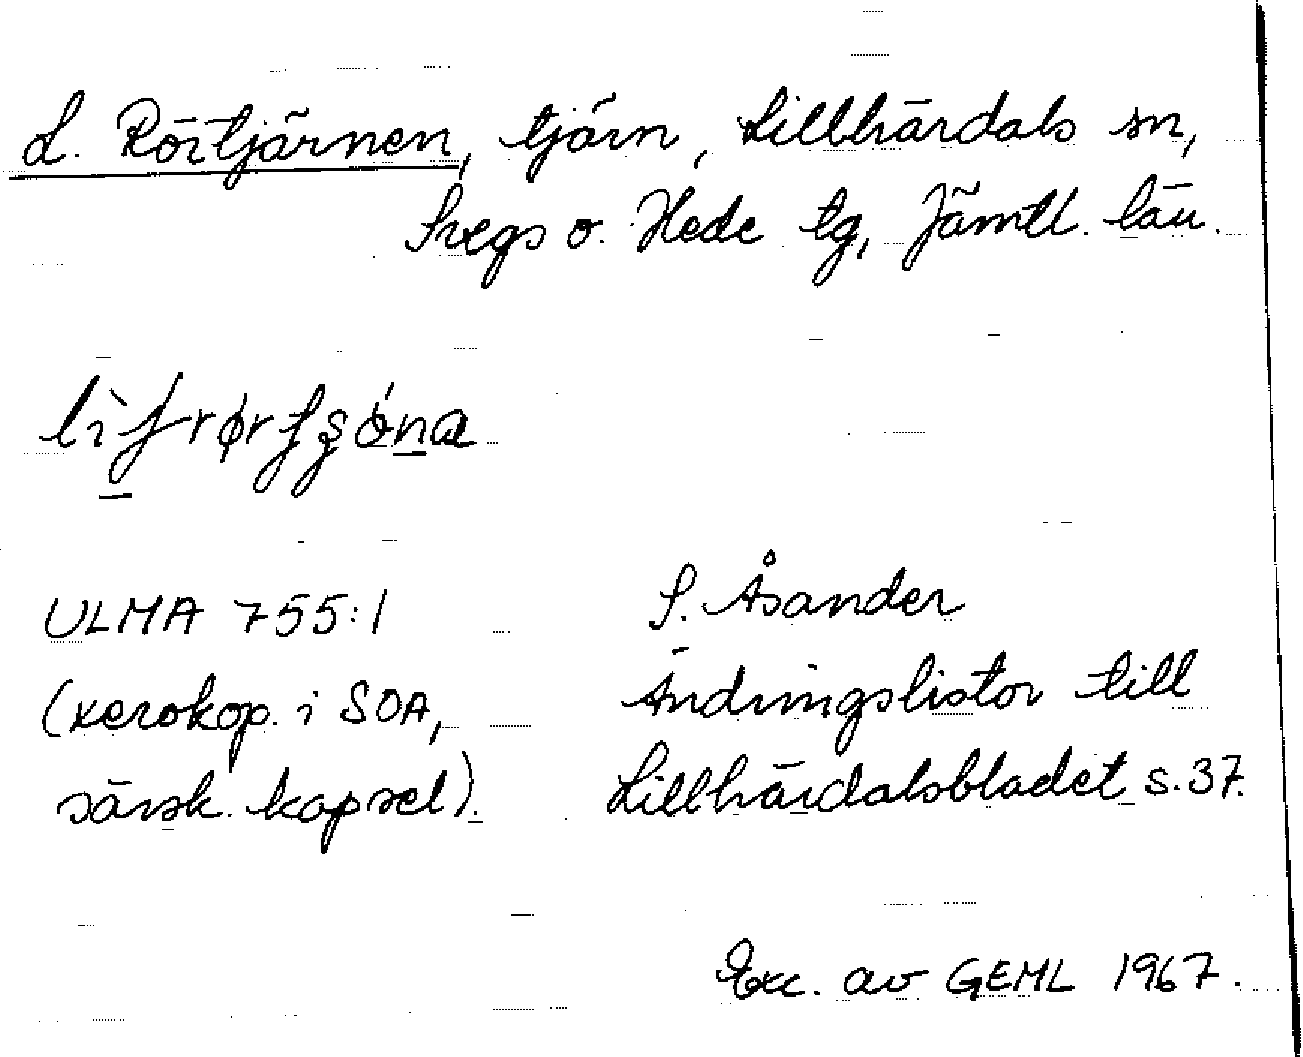 L. Rörtjärnen, tjärn, Lillhärdals sn,
Svegs o. Hede tg, Jämtl. län.
ULMA 755:1
(xerokop. i SOA,
särsk. kapsel).
S. Åsander
Ändringslistor till
Lillhärdalsbladet s. 37.
Exc. av GEML 1967.